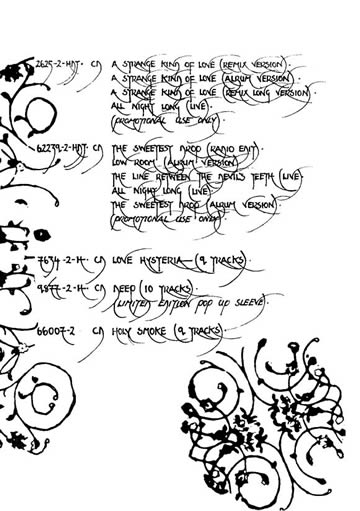 2625-2-HDT. CD A STRANGE KIND OF LOVE (REMIX VERSION).
A STRANGE KIND OF LOVE (ALBUM VERSION).
A STRANGE KIND OF LOVE (REMIX LONG VERSION).
ALL NIGHT LONG (LIVE).
(PROMOTIONAL USE ONLY)
62239-2-HDT. CD THE SWEETEST DROP (RADIO EDIT).
LOW ROOM (ALBUM VERSION)
THE LINE BETWEEN THE DEVIL'S TEETH (LIVE).
ALL NIGHT LONG (LIVE)
THE SWEETEST DROP (ALBUM VERSION)
(PROMOTIONAL USE ONLY)
CD LOVE HYSTERIA— (9 TRACKS).
9877-2-H. CD DEEP (10 TRACKS).
(LIMITED EDITION POP UP SLEEVE).
66007-2 CD HOLY SMOKE (9 TRACKS).